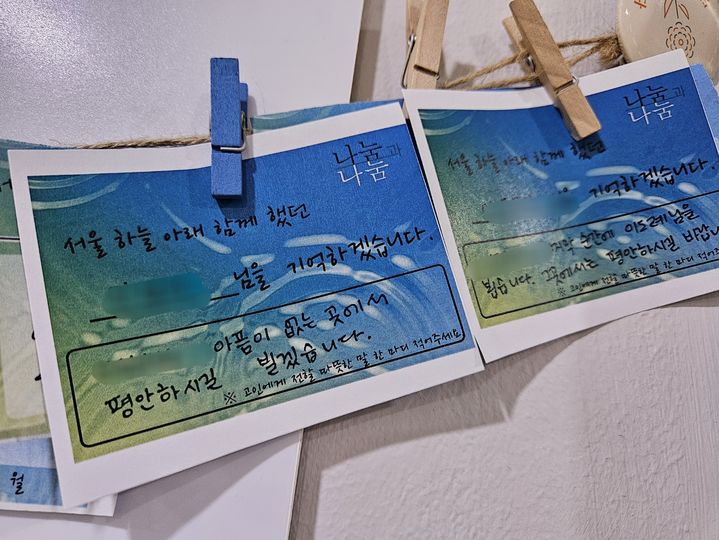 나눔과
나눔
서울 하늘 아래 함께 했던
님을 기억하겠습니다.
아픔이 없는 곳에서
평안하시길 빌겠습니다.
※ 고인에게 전할 따뜻한 말 한 마디 적어주세요
나눔과
나눔
서울 하늘 아래 함께 했던
기억하겠습니다.
순간에
뵙습니다. 그곳에서는 평안하시길 바랍니
※ 고인에게 전할 따뜻한 말 한 마디 적어주
월